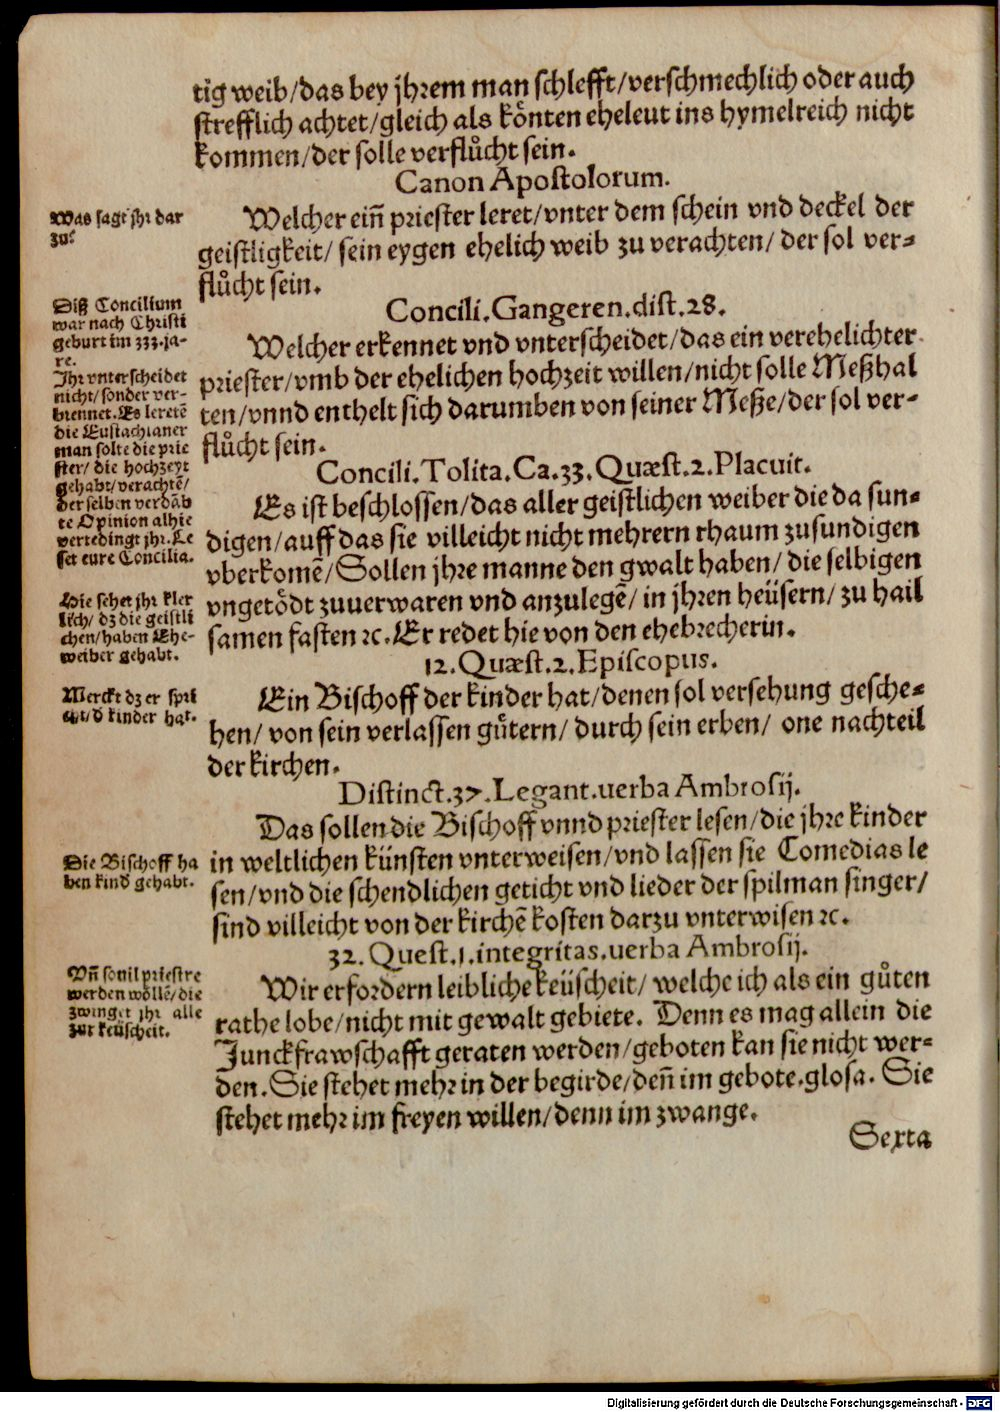 tig weib/das bey jhrem man schlefft/verschmechlich oder auch
strefflich achtet/gleich als könten eheleut ins hymelreich nicht
kommen/der solle verflůcht sein.
Canon Apostolorum.
Was sagt jhr dar
zu?
Welcher ein̄ priester leret/vnter dem schein vnd deckel der
geistligkeit/ sein eygen ehelich weib zu verachten/ der sol ver-
flůcht sein.
Concili.Gangeren.dist.28.
Diß Concilium
war nach Christi
geburt im 333.ja-
re.
Ihr vnterscheidet
nicht/sonder ver-
brennet.Es leretē
die Eustachianer
man solte die prie
ster/ die hochzeyt
gehabt/verachtē/
der selben verdāb
te Opinion alhie
vertedingt jhr.Le
set eure Concilia.
Welcher erkennet vnd vnterscheidet/das ein verehelichter
priester/vmb der ehelichen hochzeit willen/nicht solle Meßhal
ten/vnnd enthelt sich darumben von seiner Meße/der sol ver-
flůcht sein.
Concili.Tolita.Ca.33.Quæst.2.Placuit.
Es ist beschlossen/das aller geistlichen weiber die da sun-
digen/auff das sie villeicht nicht mehrern rhaum zusundigen
vberkomē/Sollen jhre manne den gwalt haben/ die selbigen
vngetödt zuuerwaren vnd anzulegē/ in jhren heüsern/ zu hail
samen fasten ꝛc.Er redet hie von den ehebrecherin.
Hie sehet jhr kler
lich/ dz die geistli
chen/haben Ehe-
weiber gehabt.
12.Quæst.2.Episcopus.
Merckt dz er spri
cht/d kinder hat.
Ein Bischoff der kinder hat/denen sol versehung gesche-
hen/ von sein verlassen gůtern/ durch sein erben/ one nachteil
der kirchen.
Distinct.37.Legant.uerba Ambrosij.
Die Bischoff ha
ben kind gehabt.
Das sollen die Bischoff vnnd priester lesen/die jhre kinder
in weltlichen künsten vnterweisen/vnd lassen sie Comedias le
sen/vnd die schendlichen geticht vnd lieder der spilman singer/
sind villeicht von der kirchē kosten darzu vnterwisen ꝛc.
32.Quest.1.integritas.uerba Ambrosij.
Vn̄ souil priestre
werden wöllē/die
zwinget jhr alle
zur keüscheit.
Wir erfordern leibliche keüscheit/ welche ich als ein gůten
rathe lobe/nicht mit gewalt gebiete. Denn es mag allein die
Junckfrawschafft geraten werden/geboten kan sie nicht wer-
den.Sie stehet mehr in der begirde/den̄ im gebote.glosa. Sie
stehet mehr im freyen willen/denn im zwange.
Sexta
Digitalisierung gefördert durch die Deutsche Forschungsgemeinschaft - DFG